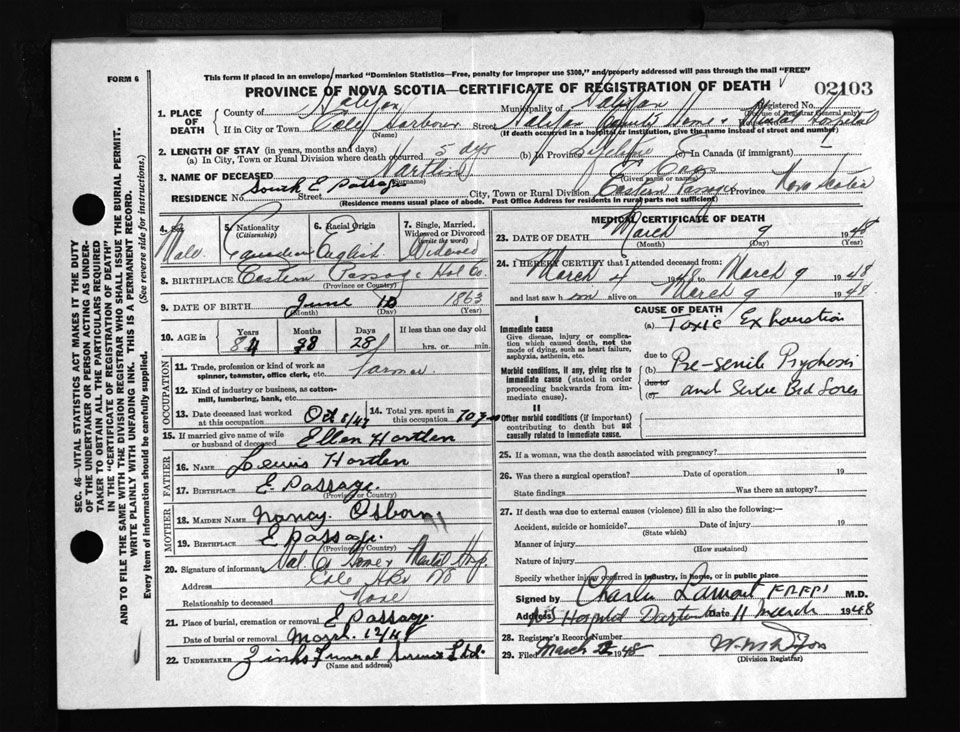 FORM 6
This form if placed in an envelope marked "Dominion Statistics—Free, penalty for improper use $300," and properly addressed will pass through the mail "FREE"
PROVINCE OF NOVA SCOTIA—CERTIFICATE OF REGISTRATION OF DEATH
02103
1. PLACE OF DEATH County of Halifax Municipality of Halifax Registered No. (For use of Registrar General only)
If in City or Town Cole Harbour Street Halifax County Home & Mental Hospital
(Name) (If death occurred in a hospital or institution, give the name instead of street and number)
2. LENGTH OF STAY (in years, months and days)
(a) In City, Town or Rural Division where death occurred 5 dys (b) In Province Lifetime (c) In Canada (if immigrant)
3. NAME OF DECEASED Hartlen
(Surname) (Given name or names)
RESIDENCE No. South E Passage Street City, Town or Rural Division Eastern Passage Province Nova Scotia
(Residence means usual place of abode. Post Office Address for residents in rural parts not sufficient)
4. Sex Male
5. Nationality (Citizenship) Canadian
6. Racial Origin English
7. Single, Married, Widowed or Divorced (write the word) Widowed
8. BIRTHPLACE Eastern Passage Hal Co.
(Province or Country)
9. DATE OF BIRTH June 1863
(Month) (Day) (Year)
10. AGE in Years 84 Months Days 28 If less than one day old
hrs. or min.
OCCUPATION
11. Trade, profession or kind of work as spinner, teamster, office clerk, etc. Farmer
12. Kind of industry or business, as cotton-mill, lumbering, bank, etc.
13. Date deceased last worked at this occupation Oct 8/47 14. Total yrs. spent in this occupation 70 yrs
15. If married give name of wife or husband of deceased Ellen Hartlen
FATHER
16. NAME Lewis Hartlen
17. BIRTHPLACE E. Passage.
(Province or Country)
MOTHER
18. MAIDEN NAME Nancy. Osborn
19. BIRTHPLACE E passage.
(Province or Country)
20. Signature of informant Hal. Co Home & Mental Hosp.
Address Cole Hbr NS
Relationship to deceased None
21. Place of burial, cremation or removal E Passage.
Date of burial or removal March 12/48
22. UNDERTAKER Zinks Funeral Service Ltd.
(Name and address)
MEDICAL CERTIFICATE OF DEATH
23. DATE OF DEATH March 9 1948
(Month) (Day) (Year)
24. I HEREBY CERTIFY that I attended deceased from:
March 4 1948 to March 9 1948
and last saw him alive on March 9 1948
CAUSE OF DEATH
I
Immediate cause
Give disease, injury or complication which caused death, not the mode of dying, such as heart failure, asphyxia, asthenia, etc.
(a) Toxic Exhaustion
due to
Morbid conditions, if any, giving rise to immediate cause (stated in order proceeding backwards from immediate cause).
(b) Pre-senile Psychosis
due to
(c) and Severe Bed Sores
II
Other morbid conditions (if important) contributing to death but not causally related to immediate cause.
25. If a woman, was the death associated with pregnancy?
26. Was there a surgical operation? Date of operation 19
State findings Was there an autopsy?
27. If death was due to external causes (violence) fill in also the following:—
Accident, suicide or homicide? Date of injury 19
(State which)
Manner of injury
(How sustained)
Nature of injury
Specify whether injury occurred in industry, in home, or in public place
Signed by Charles Lamont M.D.
Address Hospital Dartmouth Date 11 March 1948
28. Registrar's Record Number
29. Filed March 1948
(Division Registrar)
SEC. 46—VITAL STATISTICS ACT MAKES IT THE DUTY
OF THE UNDERTAKER OR PERSON ACTING AS UNDER-
TAKER TO OBTAIN ALL THE PARTICULARS REQUIRED
IN THE "CERTIFICATE OF REGISTRATION OF DEATH"
AND TO FILE THE SAME WITH THE DIVISION REGISTRAR WHO SHALL ISSUE THE BURIAL PERMIT.
WRITE PLAINLY WITH UNFADING INK. THIS IS A PERMANENT RECORD.
Every item of information should be carefully supplied. (See reverse side for instructions.)